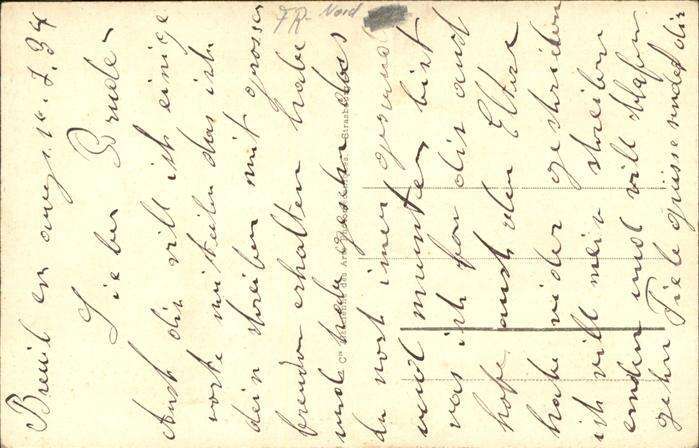 Breuil en auge. 10.7.34
Lieber Bruder
Auch dir vill ich einige
vorte mitteilen das ich
dein schreiben mit grosser
freuden erhalten habe
und habe gesehn dass
du noch imer gesund
und munter bist
vas ich von dir auch
hofe auch den Eltre
habe vider geschriben
ich vill mein schreiben
enden und vill schlafen
gehn Viele grüsse sendet dir
FR- Nord
Cie des Arts
Strasb